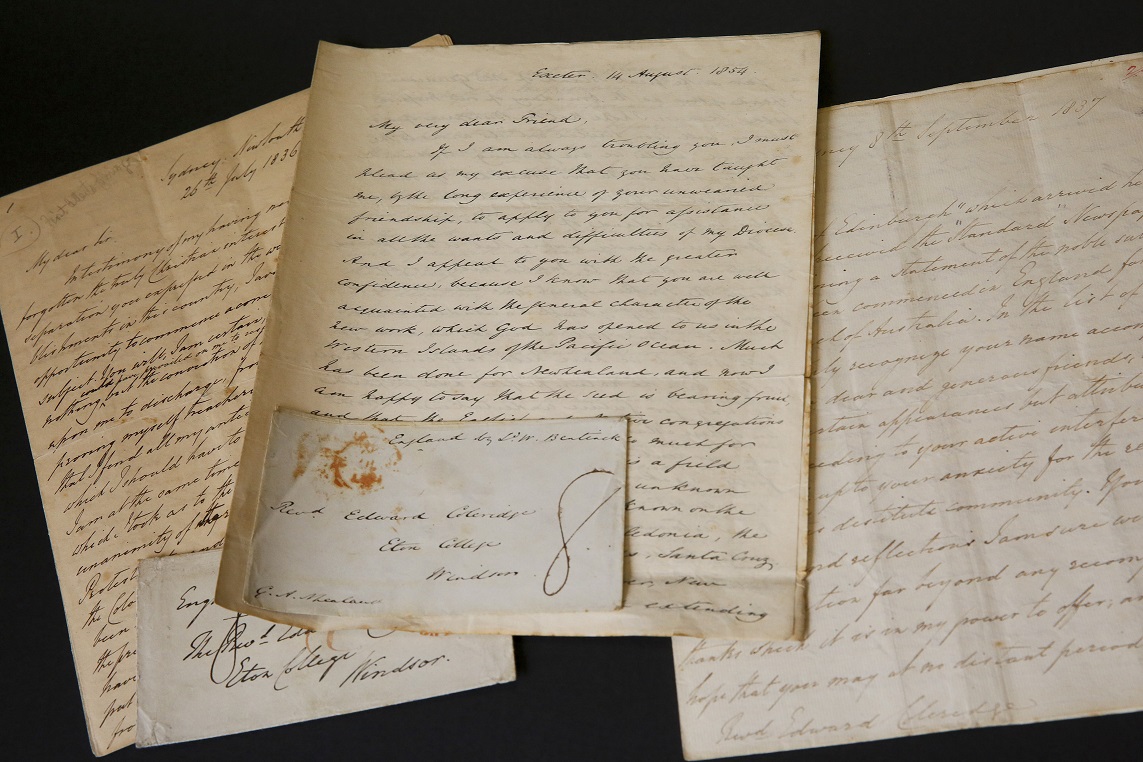 Exeter. 14 August. 1854.
My very dear Friend,
If I am always troubling you, I must
plead as my excuse that you have taught
me, by the long experience of your unwearied
friendship, to apply to you for assistance
in all the wants and difficulties of my Diocese.
And I appeal to you with the greater
confidence, because I know that you are well
acquainted with the general character of the
new work, which God has opened to us in the
Western Islands of the Pacific Ocean. Much
has been done for New Zealand, and now I
am happy to say that the seed is bearing fruit,
and that the English
congregations
much for
is a field
unknown
known on the
the
Santa Cruz
New
extending
England by Ld. W. Bentinck
Revd Edward Coleridge
Eton College
Windsor
8
1
I.
Sydney. New South
26th July 1836
My dear Sir.
In testimony of my having no
forgotten the truly Christian interest
separation, you expressed in the
blishments in this country, I
opportunity to commence a com
subject. You will, I am certain,
nothing but the conviction of
upon me to discharge,
proving myself treacherous
that I find all my
which I should have to
I am at the same time
which I took as to the
unanimity of the
Protest
the Colo
been
the pre
have
put
Eng
The Revd. Ed
Eton College
Windsor.
ney 8th September 1837
Edinburgh" which arrived
received the "Standard" Newspa
ning a statement of the noble
en commenced in England for
of Australia. In the list of
ly recognize your name
dear and generous friends,
appearances but attribu
to your active interfer
up to your anxiety for the re
destitute community. You
nd reflections I am sure
tion far beyond any recom
thanks which it is in my power to offer; a
hope that you may at no distant period
Revd Edward Coleridge